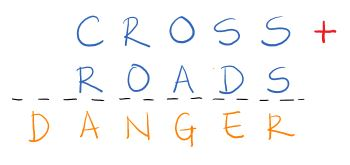 CROSS +
ROADS
DANGER